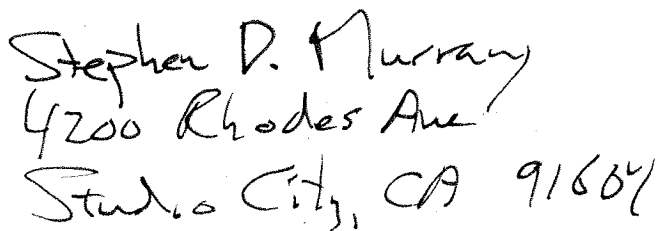 Stephen D. Murray
4200 Rhodes Ave
Studio City, CA 91604